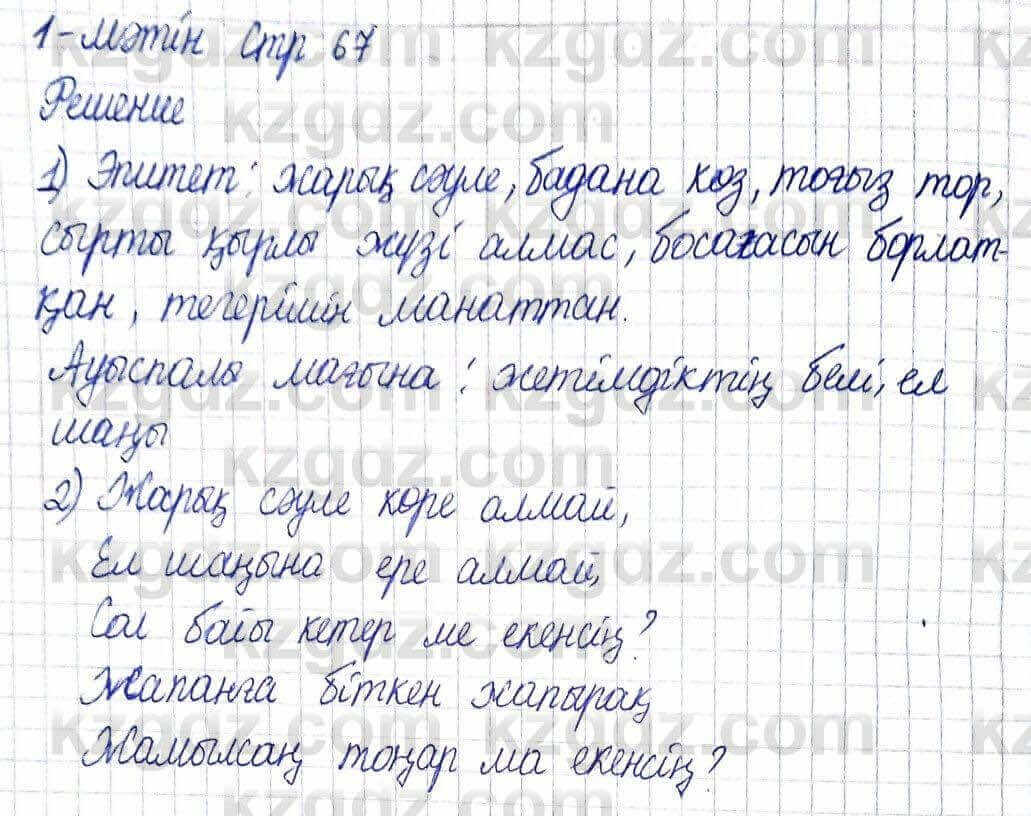 1-мәтін Стр 67
Решение
1) Эпитет: жарық сәуле, бадана көз, тоғыз тор,
сырты қырлы жүзі алмас, босағасын борлат-
қан, тегерімін манаттан.
Ауыспалы мағына: жетімдіктің белі, ел
шаңы
2) Жарық сәуле көре алмай,
Ел шаңына ере алмай,
Сол бойы кетер ме екенсің?
Жапанға біткен жапырақ
Жамылсаң тоңар ма екенсің?
kzgdz.com